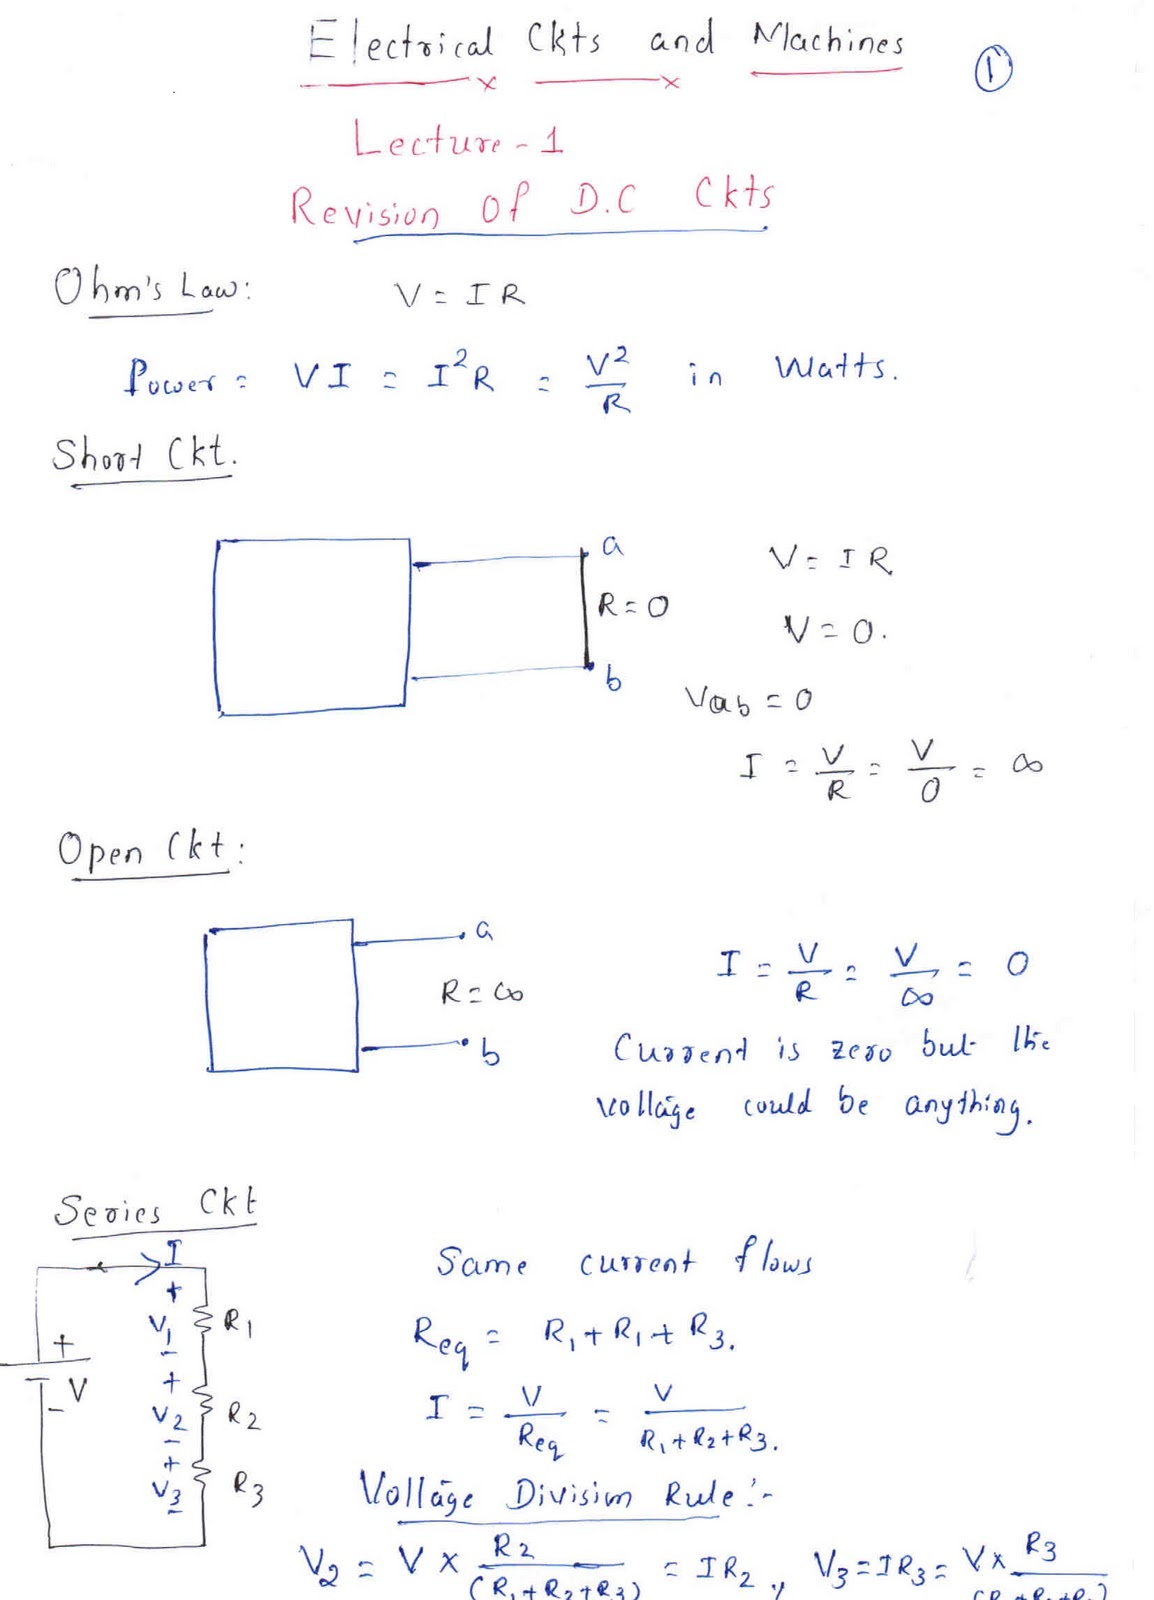 Electrical Ckts and Machines
1
Lecture - 1
Revision Of D.C Ckts
Ohm's Law: V = I R
Power = VI = I²R = V²/R in Watts.
Short Ckt.
a
R = 0
b
V = I R
V = 0.
Vab = 0
I = V/R = V/0 = ∞
Open Ckt:
a
R = ∞
b
I = V/R = V/∞ = 0
Current is zero but the
voltage could be anything.
Series Ckt
I
+
V1
-
R1
+
V
-
+
V2
-
R2
+
V3
-
R3
Same current flows
Req = R1 + R1 + R3.
I = V/Req = V/R1+R2+R3.
Voltage Division Rule:-
V2 = V × R2/(R1+R2+R3) = IR2, V3 = IR3 = V× R3/(R1+R2+R3)